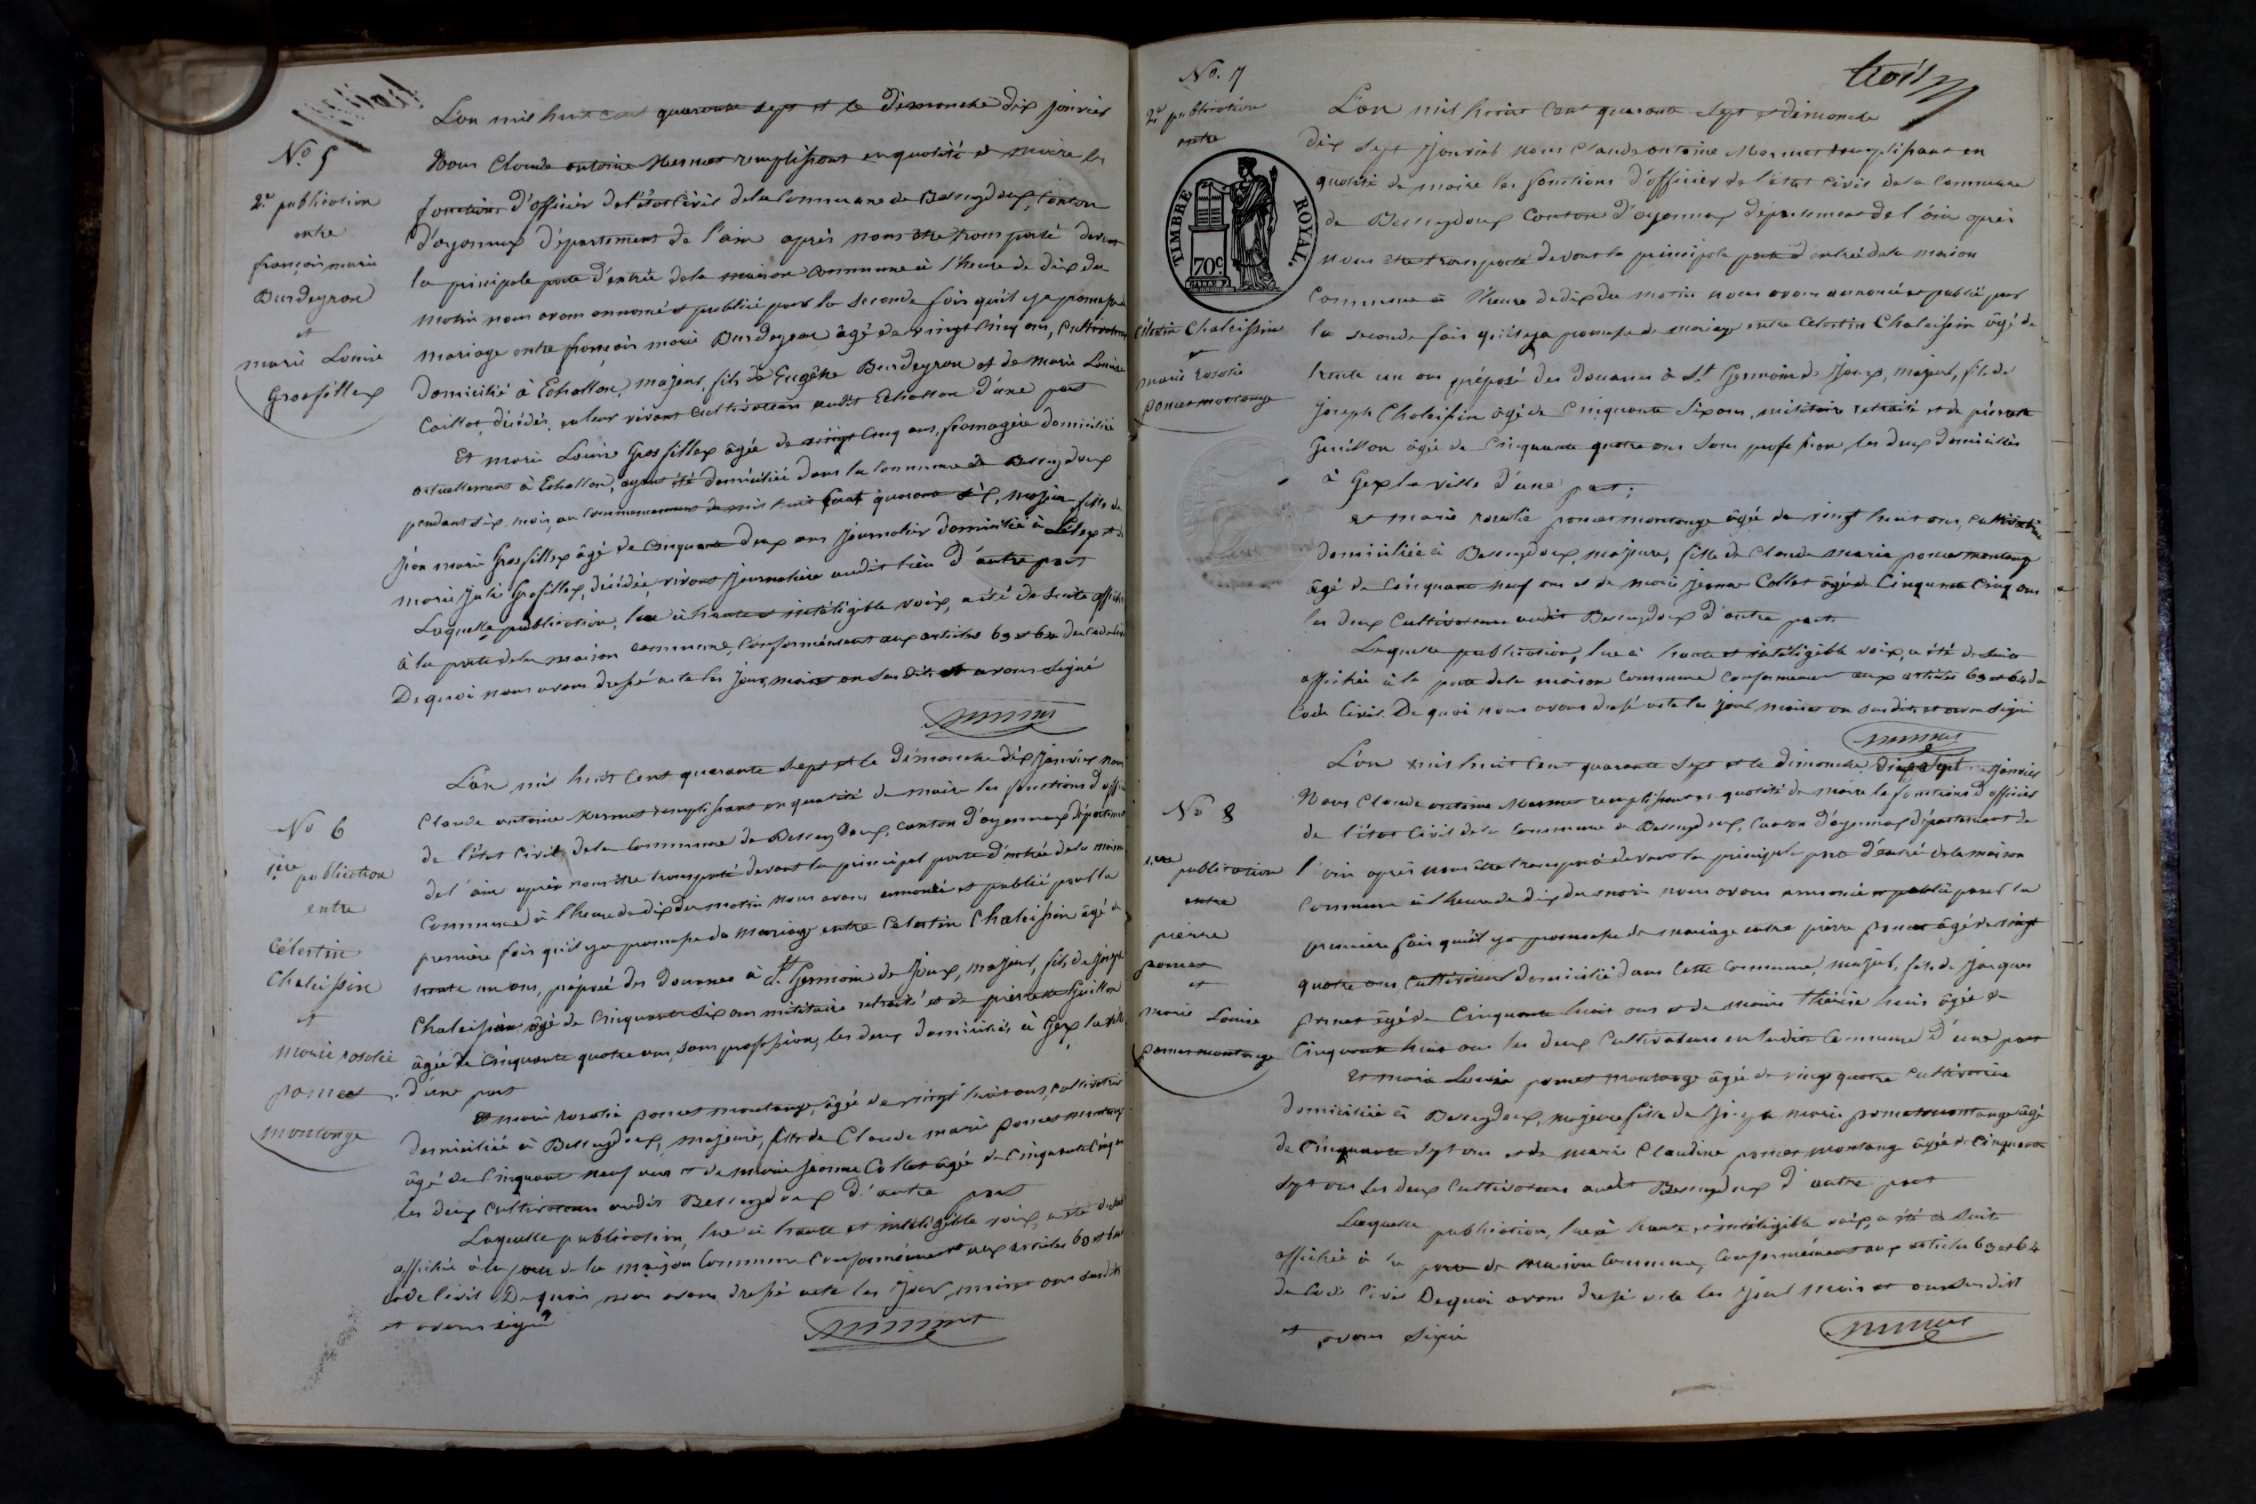 L'an mil huit cent quarante sept et le Dimanche dix janvier
N.o 5
Nous Claude antoine Mermet remplissant en qualité de maire les
2.e publication
fonctions d'officier de l'état Civil de la Commune de Belleydoux, Canton
entre
d'oyonnax Département de l'ain après nous être transporté devant
françois marie
la principale porte d'entrée de la maison Commune à l'heure de dix du
Burdeyron
matin nous avons annoncé et publié pour la seconde fois qu'il y a promesse de
et
mariage entre françois marie Burdeyron âgé de vingt cinq ans, Cultivateur
marie Louise
domicilié à Echallon, majeur, fils de Eugène Burdeyron et de marie Louise
Grosfillex
Caillat, décédés, en leur vivant Cultivateurs audit Echallon d'une part
Et marie Louise Grosfillex âgée de vingt Cinq ans, fromagère domiciliée
actuellement à Echallon, ayant été domiciliée dans la Commune de Belleydoux
pendant six mois, au Commencement de mil huit Cent quarante six, majeure fille de
jean marie Grosfillex âgé de Cinquante deux ans journalier domicilié à Lélex et de
marie julie Grosfillex, décédée, vivant journalière audit lieu d'autre part
Laquelle publication, lue à haute et intéligible voix, a été de suite affichée
à la porte de la maison commune, Conformément aux articles 63 et 64 du Code Civil
De quoi nous avons dressé acte les jour, mois et an susdits et avons signé
Mermet
L'an mil huit Cent quarante sept et le Dimanche dix janvier nous
N.o 6
Claude antoine Mermet remplissant en qualité de maire les fonctions d'officier
1.ère publication
de l'état Civil de la Commune de Belleydoux, canton d'oyonnax département
entre
de l'ain après nous être transporté devant la principal porte d'entrée de la maison
Célestin
Commune à l'heure de dix du matin nous avons annoncé et publié pour la
Chaleissin
première fois qu'il y a promesse de mariage entre Célestin Chaleissin âgé de
et
trente un ans, préposé des douanes à S.t Germain de Joux, majeur, fils de joseph
marie rosalie
Chaleissin âgé de Cinquante six ans militaire retraité et de pierrette Guillon
poncet
âgée de Cinquante quatre ans, sans profession, les deux domiciliés à Gex la ville
montange
d'une part
Et marie rosalie poncet montange, âgée de vingt huit ans, cultivatrice
domiciliée à Belleydoux, majeure, fille de Claude marie poncet montange
âgé de Cinquante neuf ans et de marie jeanne Collet âgée de Cinquante Cinq ans
les deux Cultivateurs audit Belleydoux d'autre part
Laquelle publication, lue à haute et intéligible voix, a été de suite
affichée à la porte de la maison Commune Conformément aux articles 63 et 64 du
code Civil De quoi nous avons dressé acte les jour, mois et an susdits
et avons signé
Mermet
trois
N.o 7
2.e publication
entre
TIMBRE ROYAL.
70c
Célestin Chaleissin
et
marie rosalie
poncet montange
L'an mil huit Cent quarante sept et dimanche
dix sept janvier nous Claude antoine Mermet remplissant en
qualité de maire les fonctions d'officier de l'état Civil de la Commune
de Belleydoux Canton d'oyonnax département de l'ain après
nous être transporté devant la principale porte d'entrée de la maison
Commune à l'heure de dix du matin nous avons annoncé et publié pour
la seconde fois qu'il y a promesse de mariage entre Célestin Chaleissin âgé de
trente un ans préposé des douanes à S.t Germain de Joux, majeur, fils de
joseph Chaleissin âgé de Cinquante six ans, militaire retraité et de pierrette
Guillon âgée de Cinquante quatre ans sans profession, les deux domiciliés
à Gex la ville d'une part;
et marie rosalie poncet montange âgée de vingt huit ans, cultivatrice
domiciliée à Belleydoux, majeure, fille de Claude marie poncet montange
âgé de Cinquante neuf ans et de marie jeanne Collet âgée de Cinquante Cinq ans
les deux Cultivateurs audit Belleydoux d'autre part.
Laquelle publication, lue à haute et intéligible voix, a été de suite
affichée à la porte de la maison Commune Conformément aux articles 63 et 64 du
Code Civil. De quoi nous avons dressé acte les jour mois et an susdits et avons signé
Mermet
L'an mil huit Cent quarante sept et le dimanche dix sept janvier
N.o 8
Nous Claude antoine Mermet remplissant en qualité de maire les fonctions d'officier
de l'état Civil de la Commune de Belleydoux, Canton d'oyonnax département de
1.ère publication
l'ain après nous être transporté devant la principale porte d'entrée de la maison
entre
Commune à l'heure de dix du matin nous avons annoncé et publié pour la
pierre
première fois qu'il y a promesse de mariage entre pierre poncet âgé de vingt
poncet
quatre ans Cultivateur domicilié dans Cette Commune, majeur, fils de jacques
et
marie Louise
poncet âgé de Cinquante huit ans et de marie thérèse âgée de
poncet montange
Cinquante huit ans les deux Cultivateurs en ladite Commune d'une part
Et marie Louise poncet montange âgée de vingt quatre Cultivatrice
domiciliée à Belleydoux, majeure fille de marie poncet montange âgé
de Cinquante sept ans et de marie Claudine poncet montange âgée de Cinquante
sept ans les deux Cultivateurs audit Belleydoux d'autre part
Laquelle publication, lue à haute, et intéligible voix, a été de suite
affichée à la porte de maison Commune, Conformément aux articles 63 et 64
du Code Civil De quoi avons dressé acte les jour mois et an susdits
et avons signé
Mermet